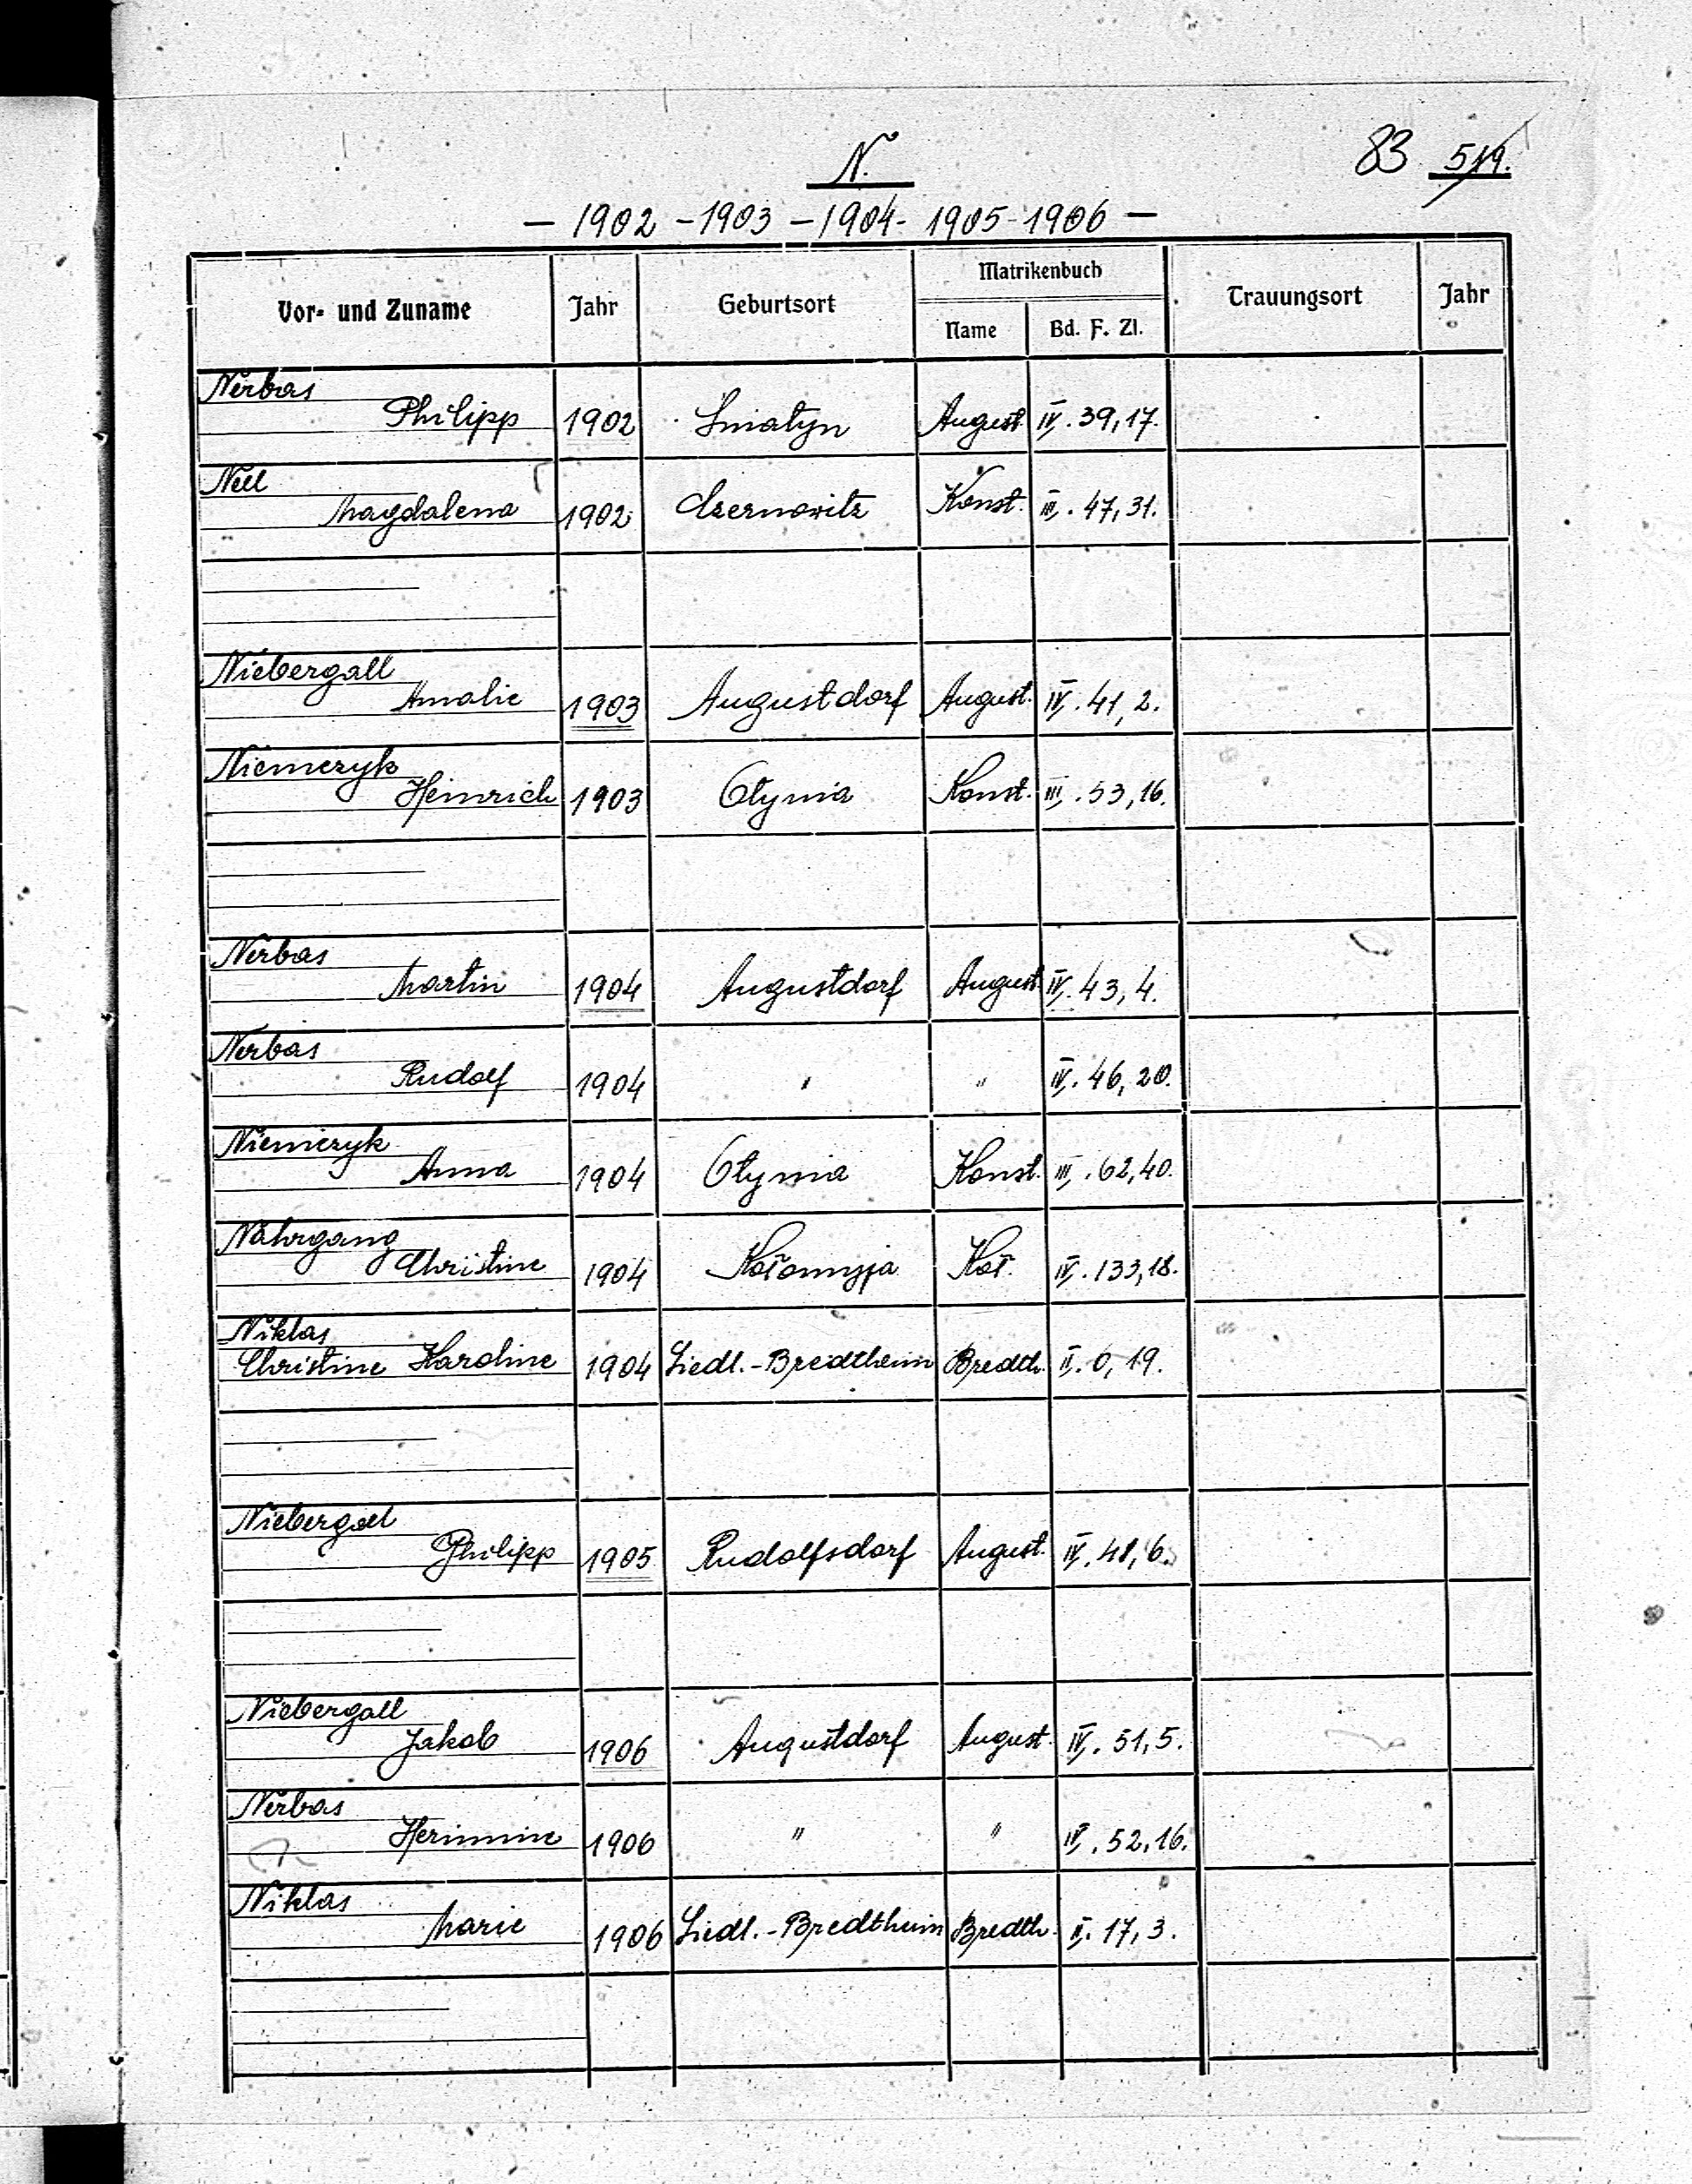 N.
83 519.
— 1902 - 1903 - 1904 - 1905 - 1906 —
Vor- und Zuname Jahr Geburtsort Matrikenbuch Trauungsort Jahr
Name Bd. F. Zl.
Nerbas
Philipp 1902 Sniatyn August. IV. 39, 17.
Nell
Magdalena 1902 Czernowitz Konst. III. 47, 31.
Niebergall
Amalie 1903 Augustdorf August. IV. 41, 2.
Niemczyk
Heinrich 1903 Otynia Konst. III. 53, 16.
Nerbas
Martin 1904 Augustdorf August. IV. 43, 4.
Nerbas
Rudolf 1904 " " IV. 46, 20.
Niemczyk
Anna 1904 Otynia Konst. III. 62, 40.
Nahrgang
Christine 1904 Kołomyja Koł. IV. 133, 18.
Niklas
Christine Karoline 1904 Siedl.-Bredtheim Bredth. II. 0, 19.
Niebergall
Philipp 1905 Rudolfsdorf August. IV. 48, 6.
Niebergall
Jakob 1906 Augustdorf August. IV. 51, 5.
Nerbas
Hermine 1906 " " IV. 52, 16.
Niklas
Marie 1906 Siedl.-Bredtheim Bredth. II. 17, 3.